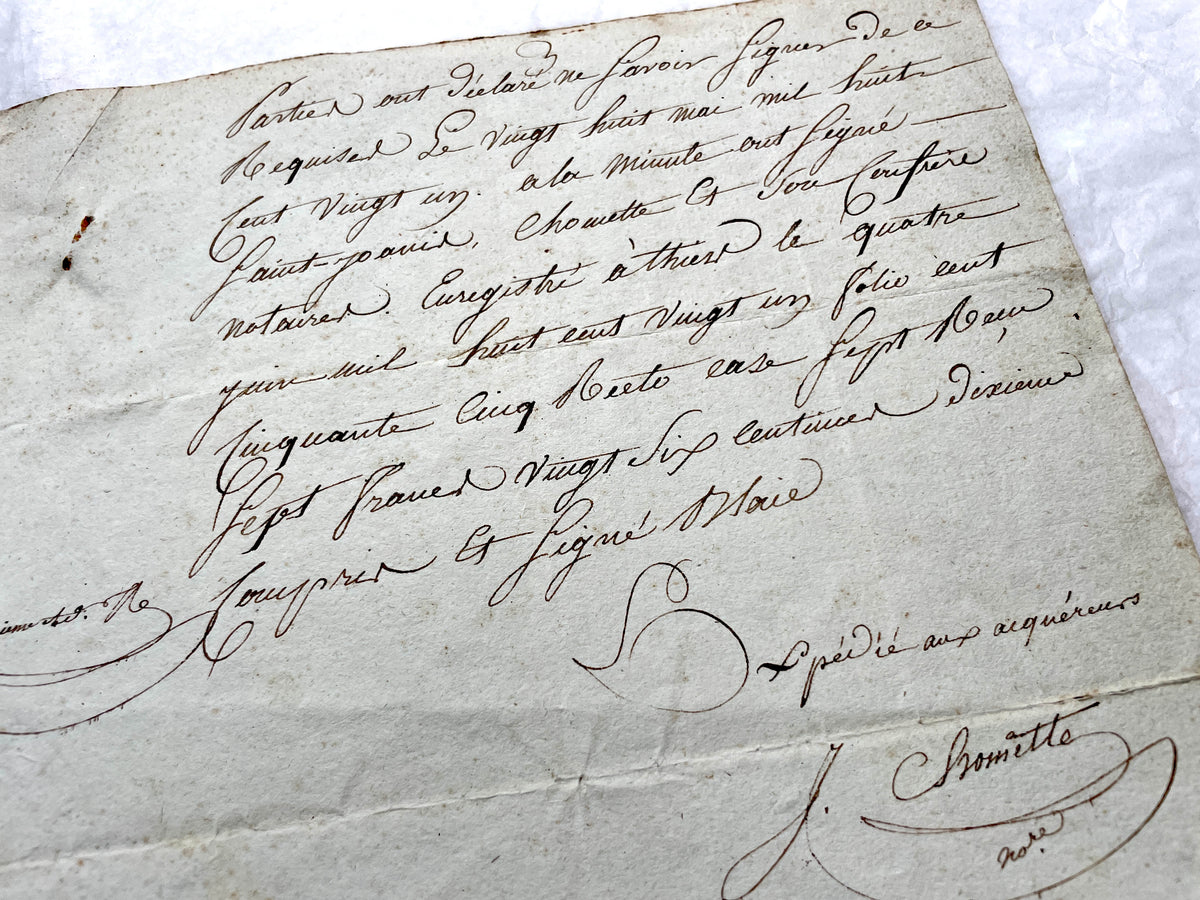 Parties ont déclaré ne savoir signer de ce
Requises Le vingt huit mai mil huit
Cent vingt un. a la minute ont signé
Saint-joanis, Chomette Et son Confrère
notaires. Enregistré à thiers le quatre
juin mil huit cent vingt un folio cent
Cinquante Cinq Recto case Sept Reçu
Sept francs vingt six centimes dixieme
Compris Et Signé
Expédié aux acquéreurs
J. Chomette
nore.